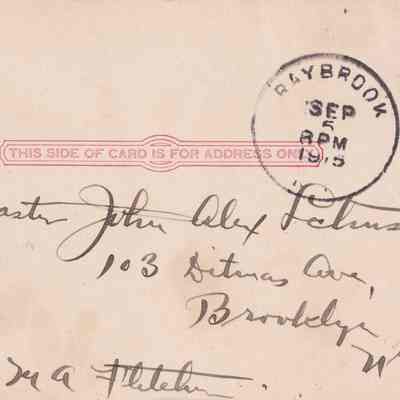 RAYBROOK
SEP
5
8PM
1915
THIS SIDE OF CARD IS FOR ADDRESS ONLY
aster John Alex
103 Ditmas Ave,
Brooklyn
N
M A Fletcher